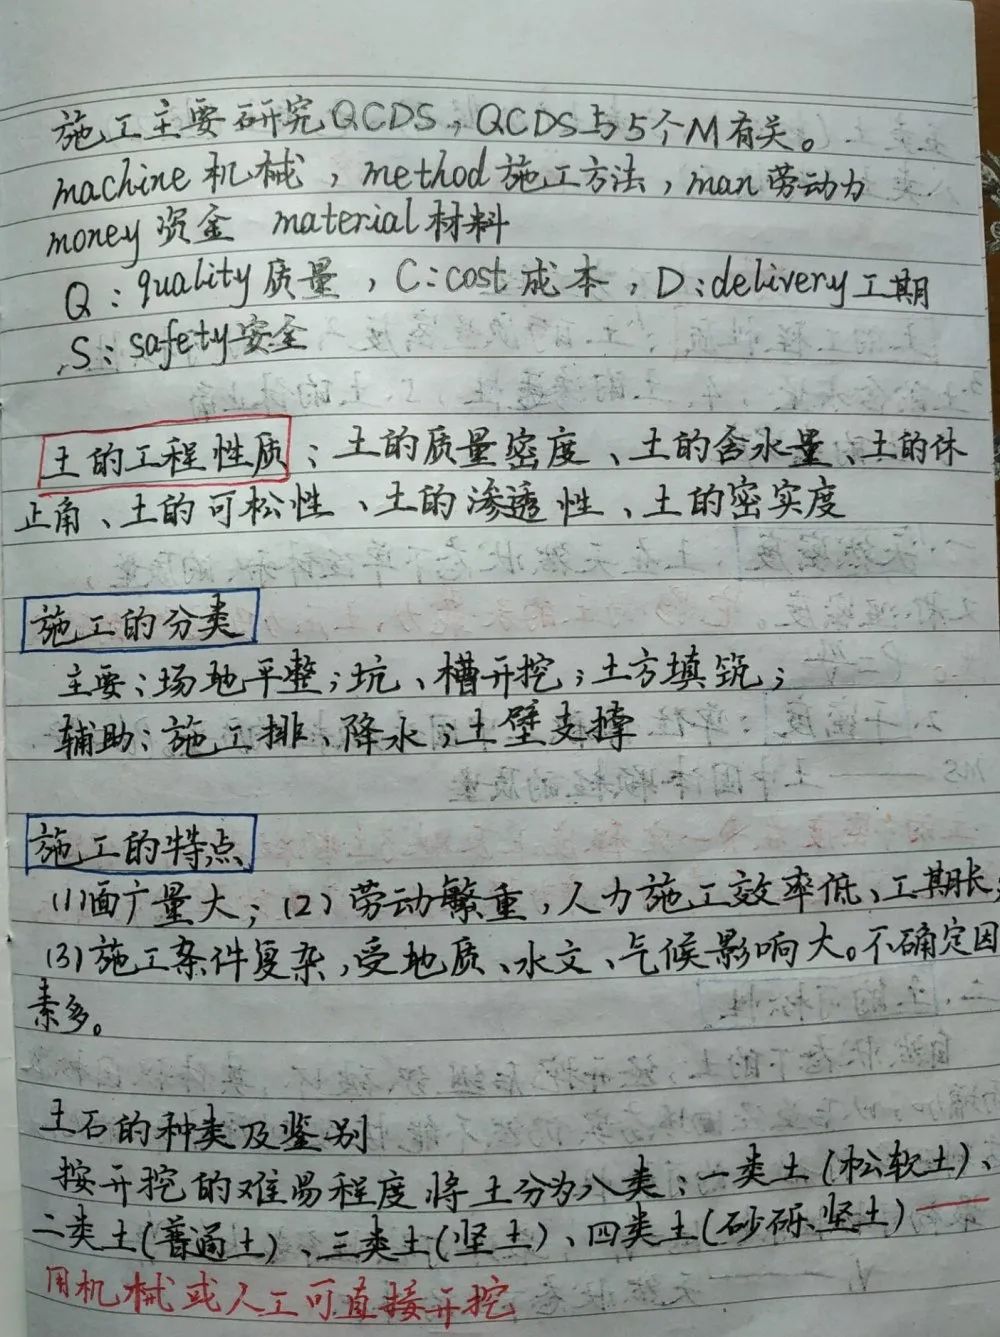 施工主要研究QCDS，QCDS与5个M有关。
machine机械，method施工方法，man劳动力
money资金 material材料
Q：quality质量，C：cost成本，D：delivery工期
S：safety安全
土的工程性质：土的质量密度、土的含水量、土的休
止角、土的可松性、土的渗透性、土的密实度
施工的分类
主要：场地平整；坑、槽开挖；土方填筑；
辅助：施工排、降水；土壁支撑
施工的特点
(1)面广量大；(2)劳动繁重，人力施工效率低、工期长；
(3)施工条件复杂，受地质、水文、气候影响大。不确定因
素多。
土石的种类及鉴别
按开挖的难易程度将土分为八类：一类土(松软土)、
二类土(普通土)、三类土(坚土)、四类土(砂砾坚土)
用机械或人工可直接开挖